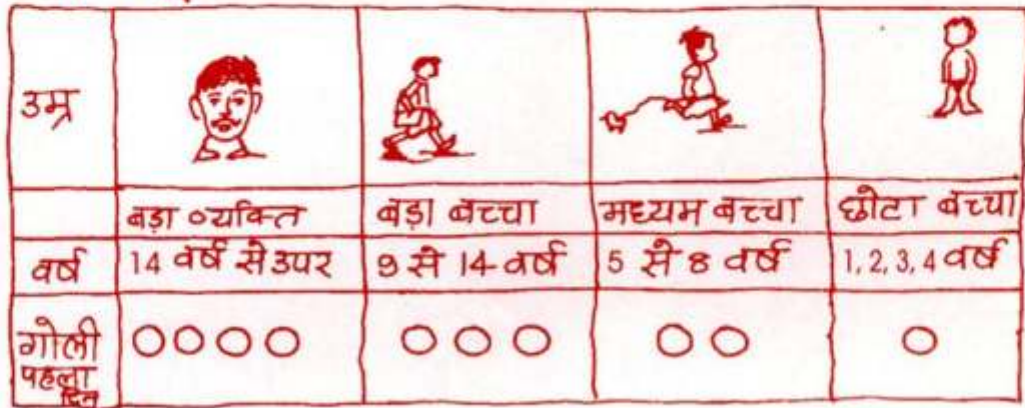 उम्र
बड़ा व्यक्ति बड़ा बच्चा मध्यम बच्चा छोटा बच्चा
वर्ष 14 वर्ष से उपर 9 से 14 वर्ष 5 से 8 वर्ष 1, 2, 3, 4 वर्ष
गोली
पहला
दिन